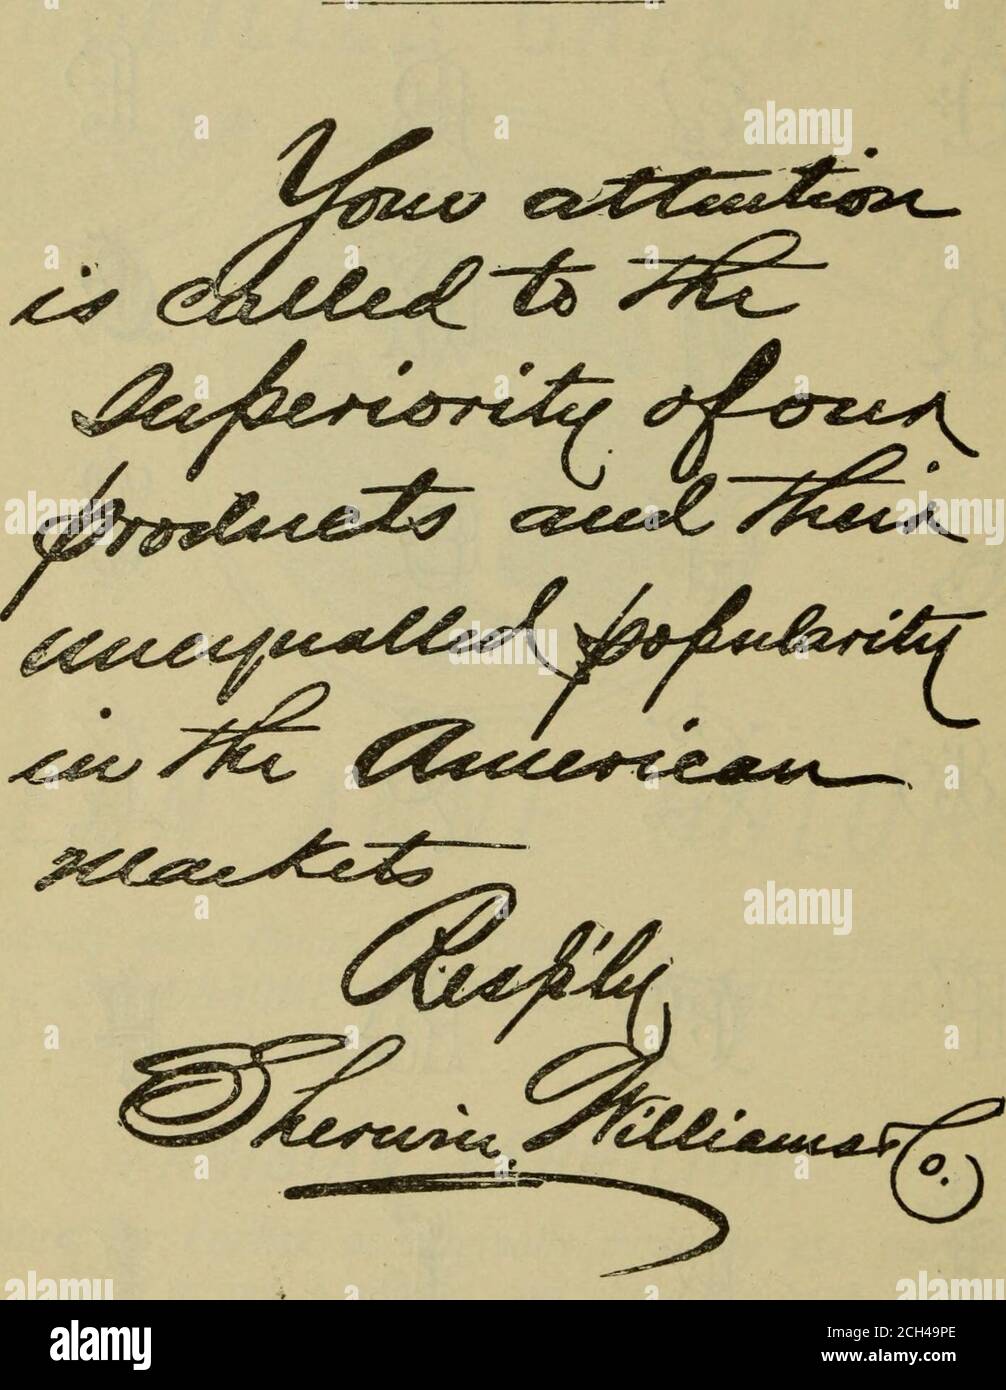 Your attention
is called to the
superiority of our
products and their
unequalled popularity
in the American
markets
Resp'ly,
Sherwin, Williams & Co.
alamy
Image ID: 2CH49PE
www.alamy.com